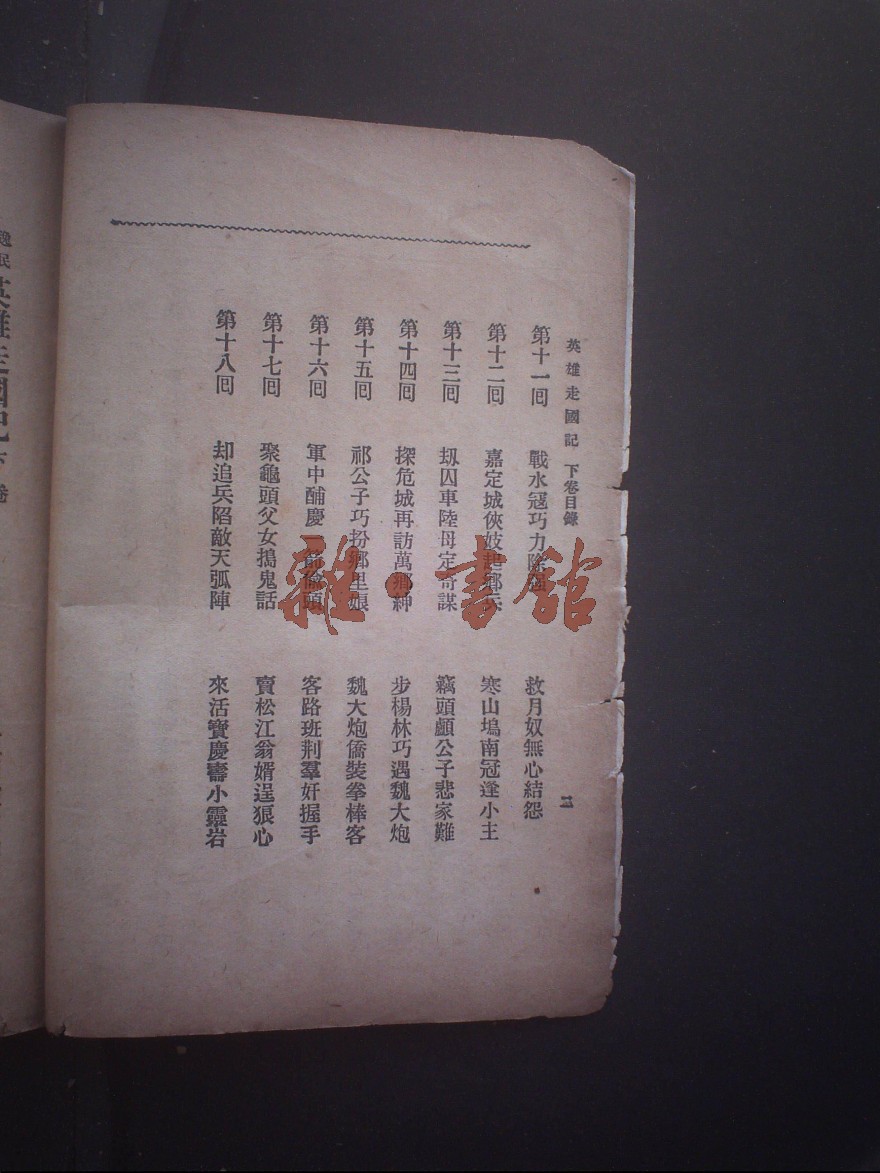 英雄走國記 下卷目錄 二
第十一回 戰水寇巧力除強 救月奴無心結怨
第十二回 嘉定城俠妓起鄉兵 寒山塢南冠逢小主
第十三回 刼囚車陸母定奇謀 竊頭顱公子悲家難
第十四回 探危城再訪萬鄉紳 步楊林巧遇魏大炮
第十五回 祁公子巧扮鄉里娘 魏大炮僑裝拳棒客
第十六回 軍中酺慶一箭 頭 客路班荆羣奸握手
第十七回 聚龜頭父女搗鬼話 賣松江翁婿逞狠心
第十八回 却追兵陷敵天弧陣 來活寶慶壽小靈岩
民英雄走國記下卷
雜·書館